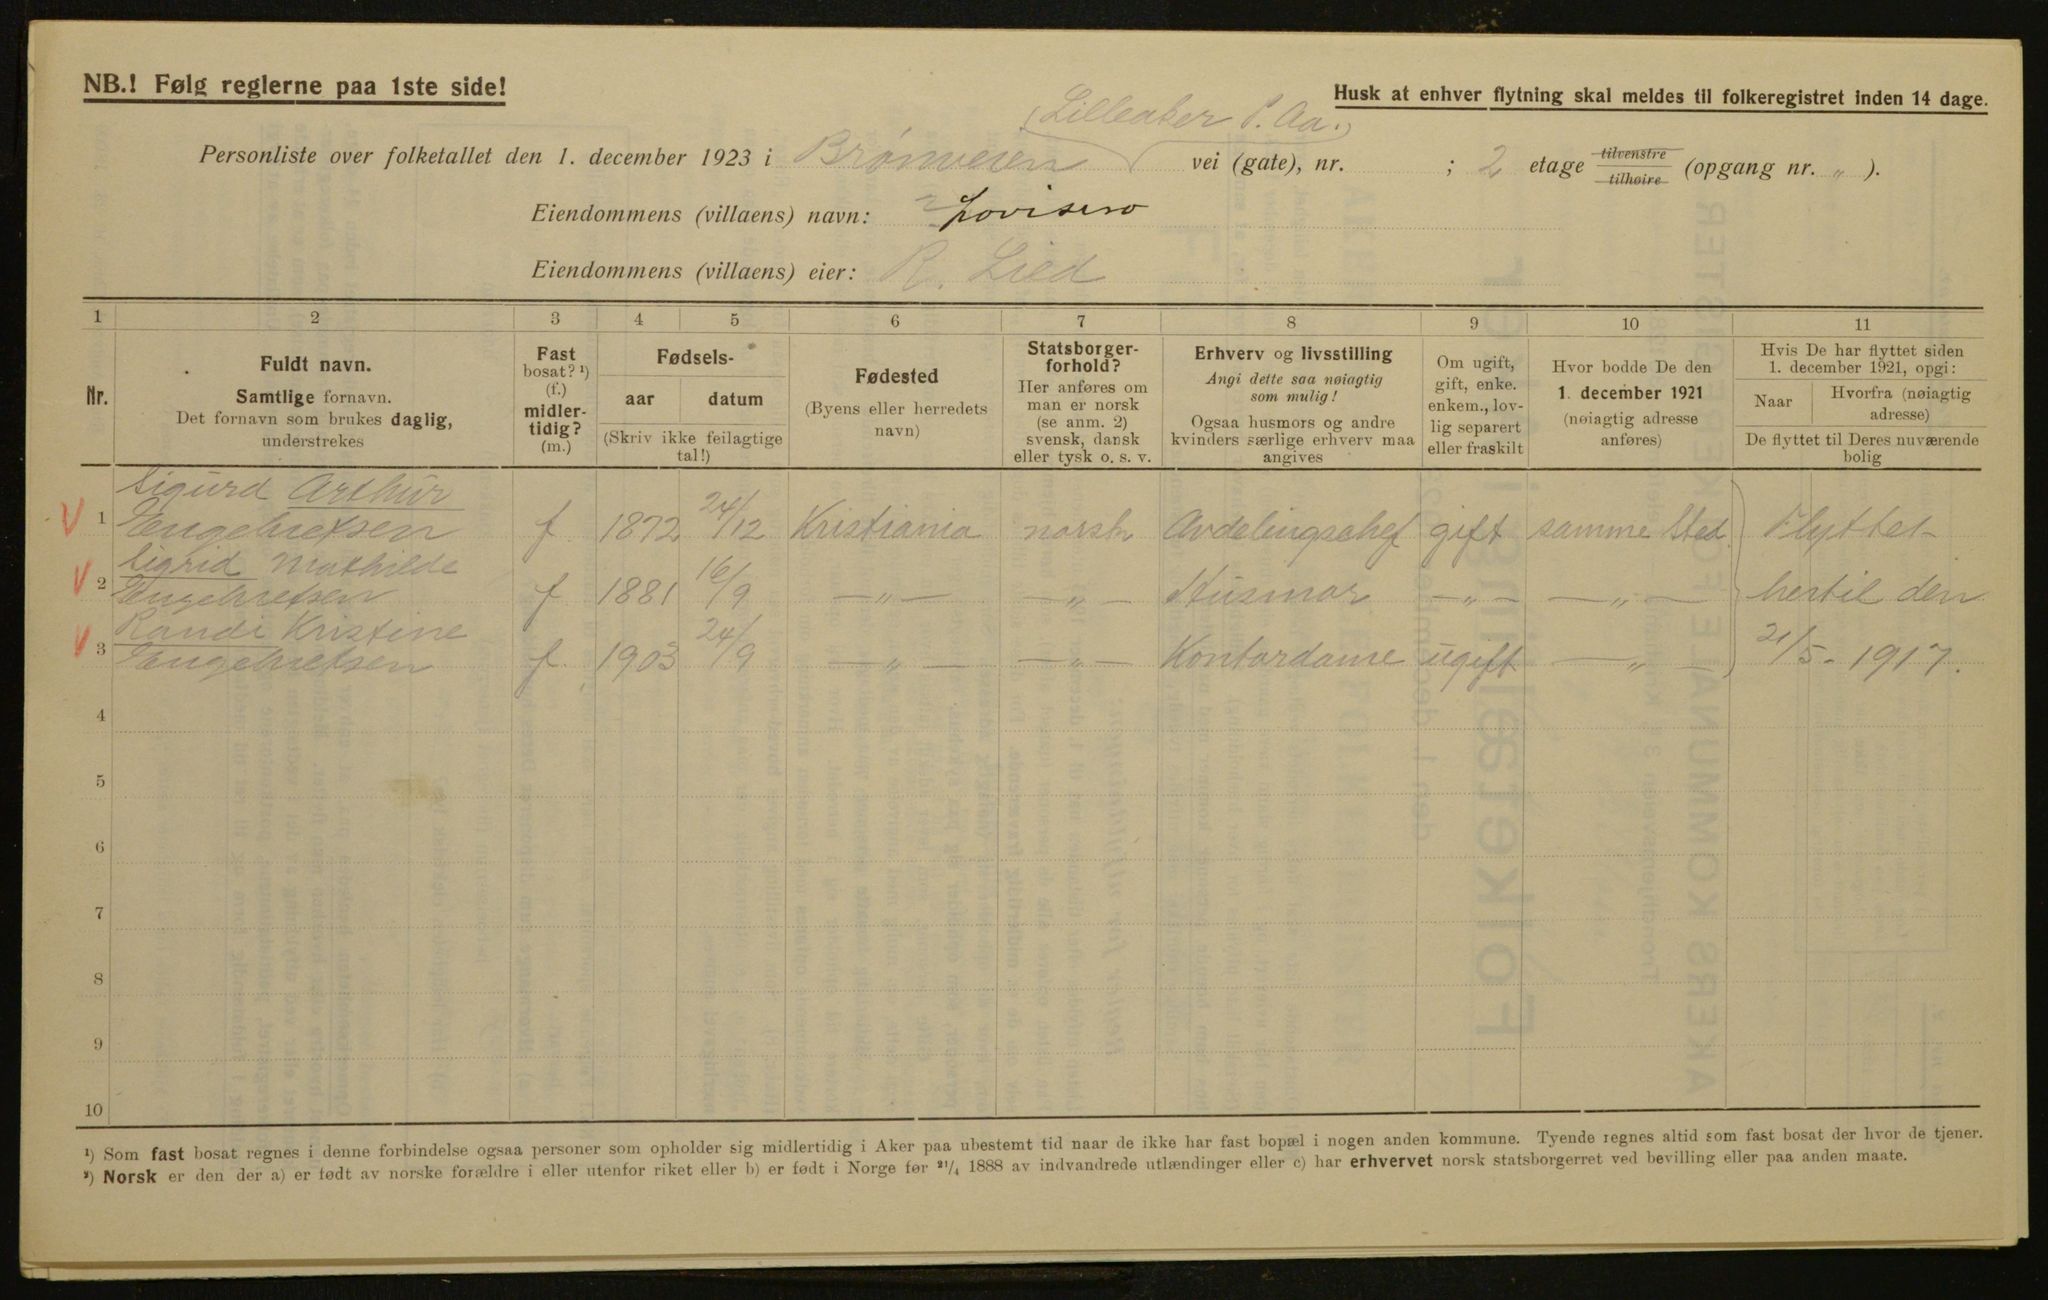 NB.! Følg reglerne paa 1ste side!
Husk at enhver flytning skal meldes til folkeregistret inden 14 dage.
(Lilleaker P. Aa.)
Personliste over folketallet den 1. december 1923 i Brønveien vei (gate), nr. ; 2 etage tilvenstre tilhøire (opgang nr. „ ).
Eiendommens (villaens) navn: Lovisero
Eiendommens (villaens) eier: R. Lied
1 2 3 4 5 6 7 8 9 10 11
Nr.
Fuldt navn.
Samtlige fornavn.
Det fornavn som brukes daglig,
understrekes
Fast
bosat? ¹)
(f.)
midler-
tidig?
(m.)
Fødsels-
aar datum
(Skriv ikke feilagtige
tal!)
Fødested
(Byens eller herredets
navn)
Statsborger-
forhold?
Her anføres om
man er norsk
(se anm. 2)
svensk, dansk
eller tysk o. s. v.
Erhverv og livsstilling
Angi dette saa nøiagtig
som mulig!
Ogsaa husmors og andre
kvinders særlige erhverv maa
angives
Om ugift,
gift, enke.
enkem., lov-
lig separert
eller fraskilt
Hvor bodde De den
1. december 1921
(nøiagtig adresse
anføres)
Hvis De har flyttet siden
1. december 1921, opgi:
Naar
Hvorfra (nøiagtig
adresse)
De flyttet til Deres nuværende
bolig
Sigurd Arthur
1 Engebretsen f 1872 24/12 Kristiania norsk Avdelingschef gift samme Sted Flyttet
Sigrid Mathilde
2 Engebretsen f 1881 16/9 —„— —„— Husmor —„— —„— hertil den
Randi Kristine
3 Engebretsen f. 1903 24/9 —„— —„— Kontordame ugift —„— 21/5 - 1917.
4
5
6
7
8
9
10
¹) Som fast bosat regnes i denne forbindelse ogsaa personer som opholder sig midlertidig i Aker paa ubestemt tid naar de ikke har fast bopæl i nogen anden kommune. Tyende regnes altid som fast bosat der hvor de tjener.
²) Norsk er den der a) er født av norske forældre i eller utenfor riket eller b) er født i Norge før ²¹/₄ 1888 av indvandrede utlændinger eller c) har erhvervet norsk statsborgerret ved bevilling eller paa anden maate.